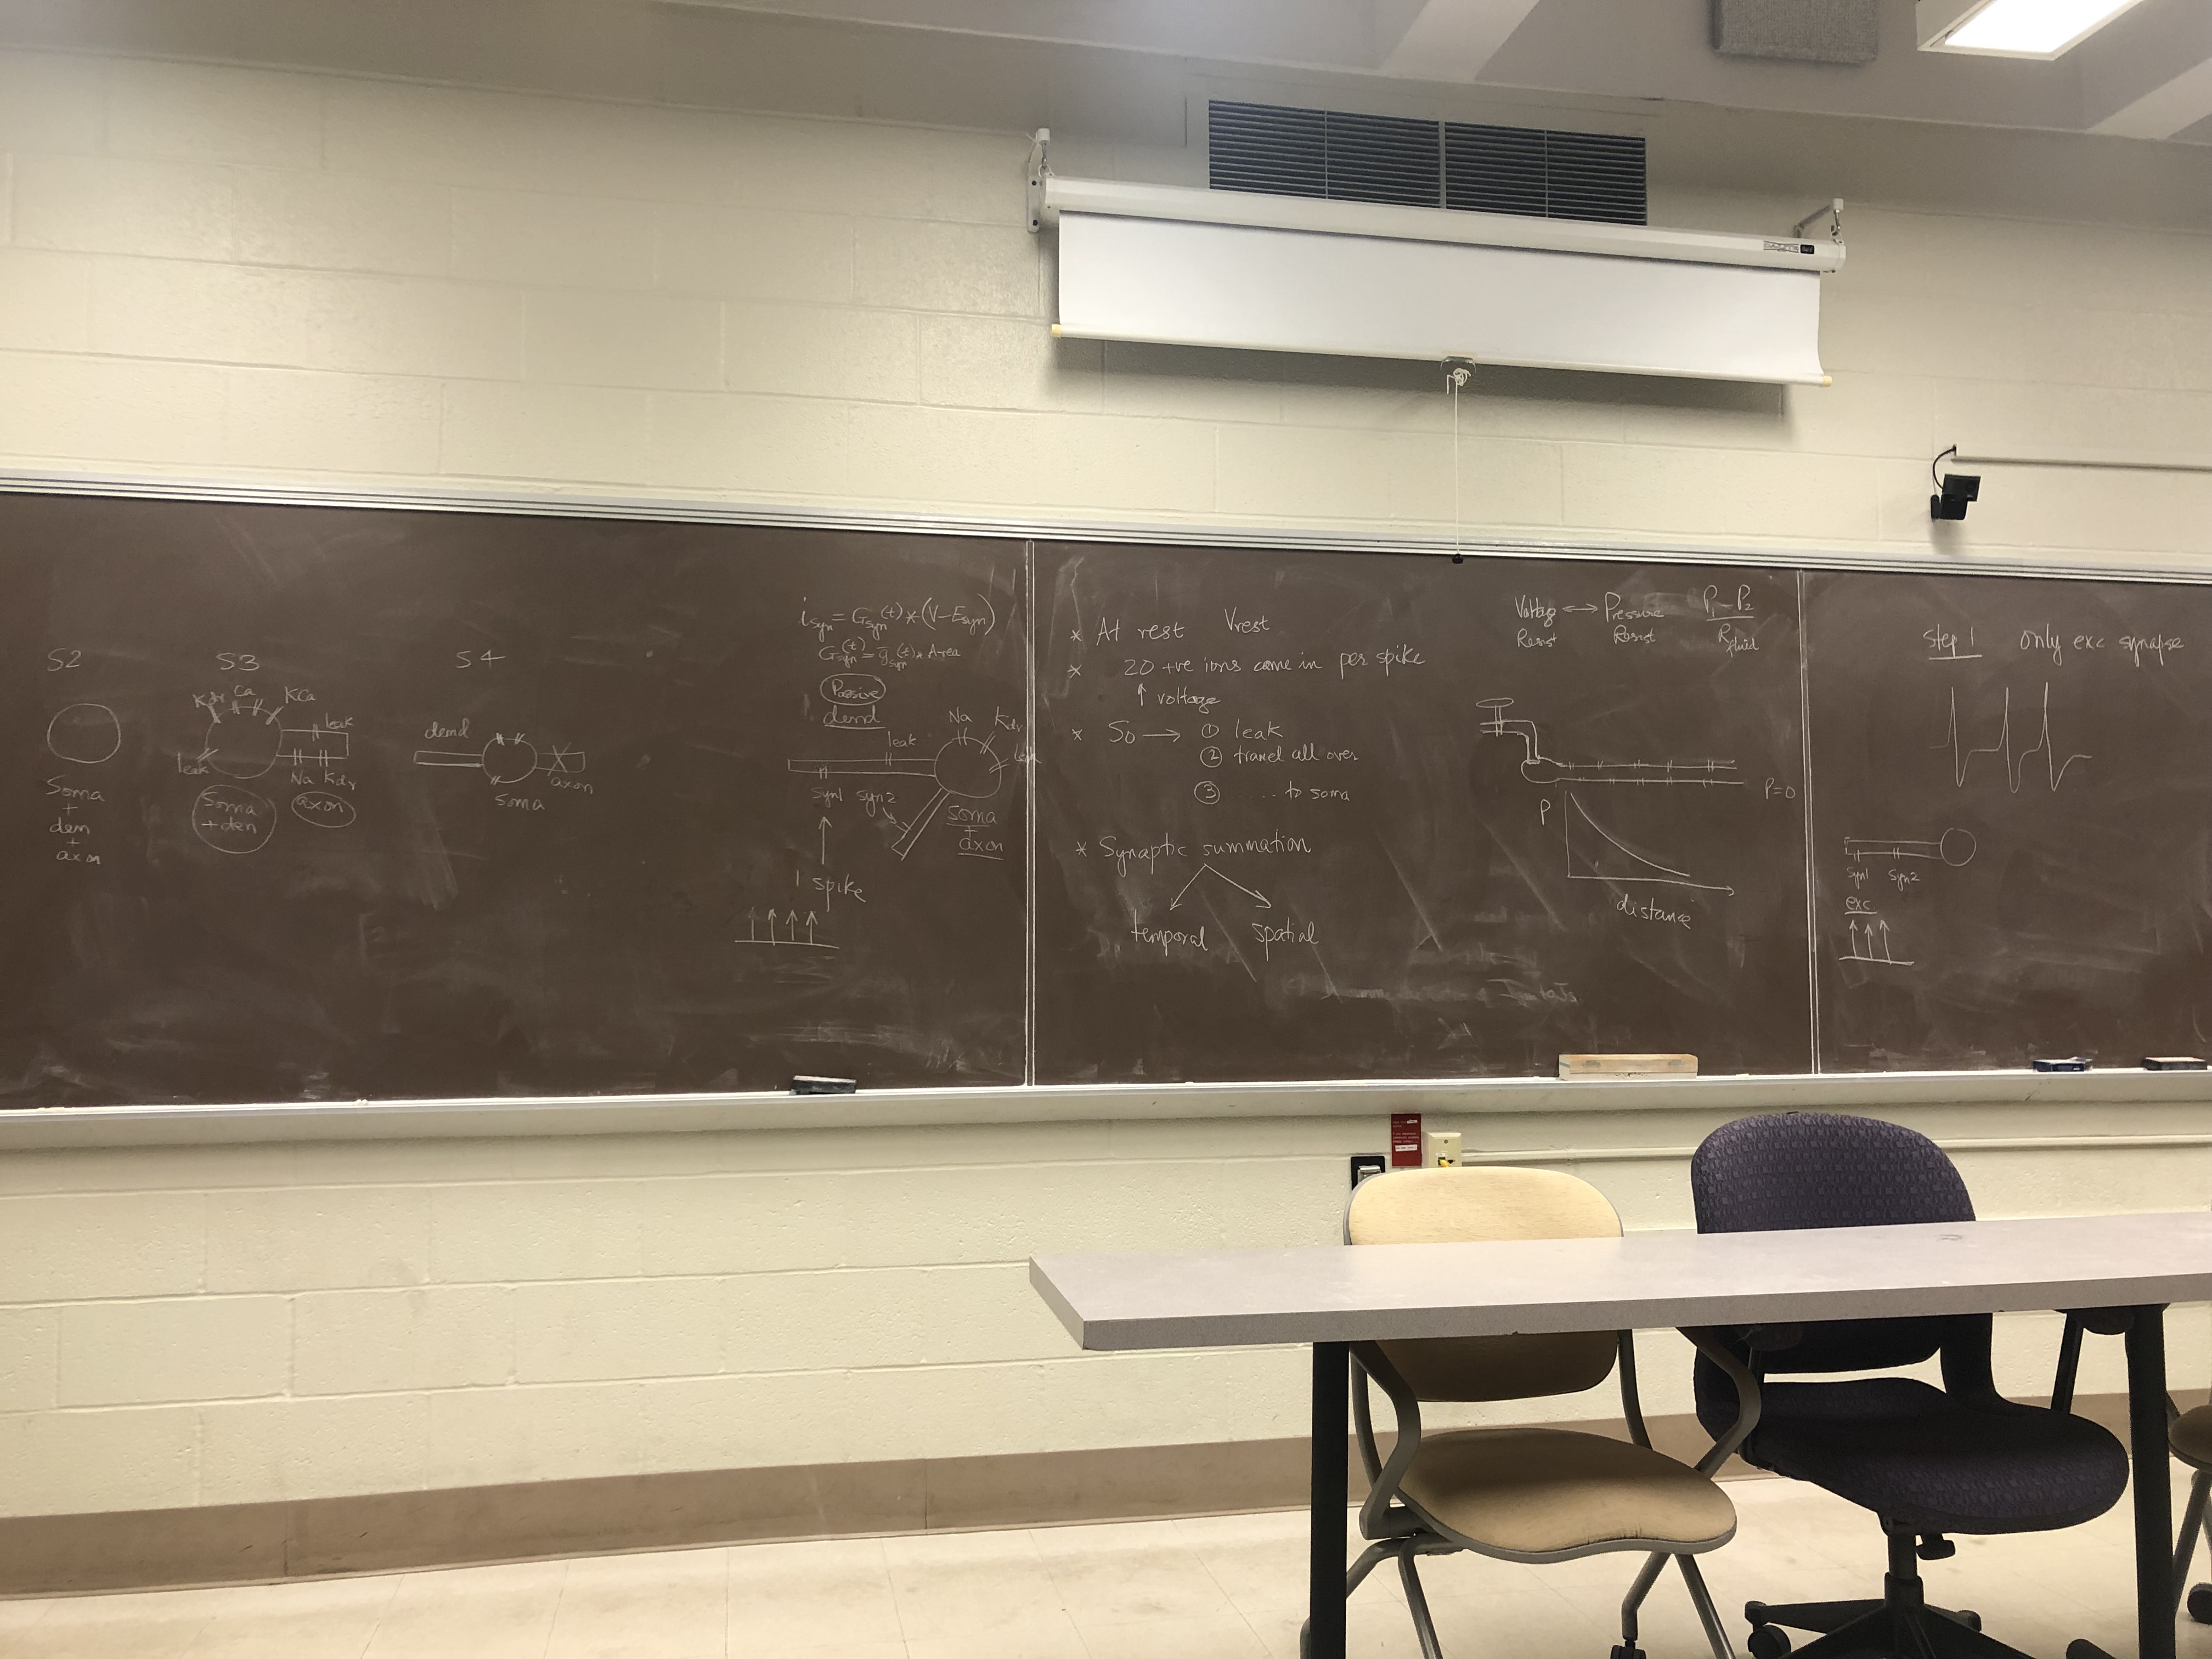 S2
Soma
+
den
+
axon
S3
Kdr Ca KCa
leak
leak
Na Kdr
Soma
+den
axon
S4
dend
soma
axon
i_syn = G_syn(t) * (V-E_syn)
G_syn(t) = g̅_syn(t) * Area
Passive
dend
Na Kdr
leak
leak
syn1 syn2
soma
+
axon
1 spike
* At rest Vrest
* 20 +ve ions come in per spike
↑ voltage
* So → ① leak
② travel all over
③ .... to soma
* Synaptic summation
temporal spatial
Voltage ↔ Pressure
Resist Resist
P1 - P2
R fluid
P=0
P
distance
Step 1 only exc synapse
syn1 syn2
exc